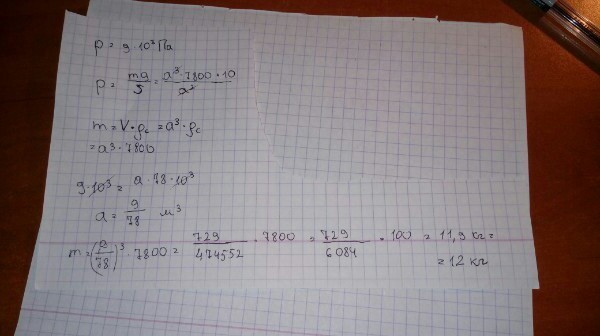 p = 9·10³Па
p = mg/S = a³·7800·10/a²
m = V·ρc = a³·ρc
= a³·7800
9·10³ = a·78·10³
a = 9/78 м³
m = (9/78)³·7800 = 729/474552 · 7800 = 729/6084 · 100 = 11,9 кг =
= 12 кг